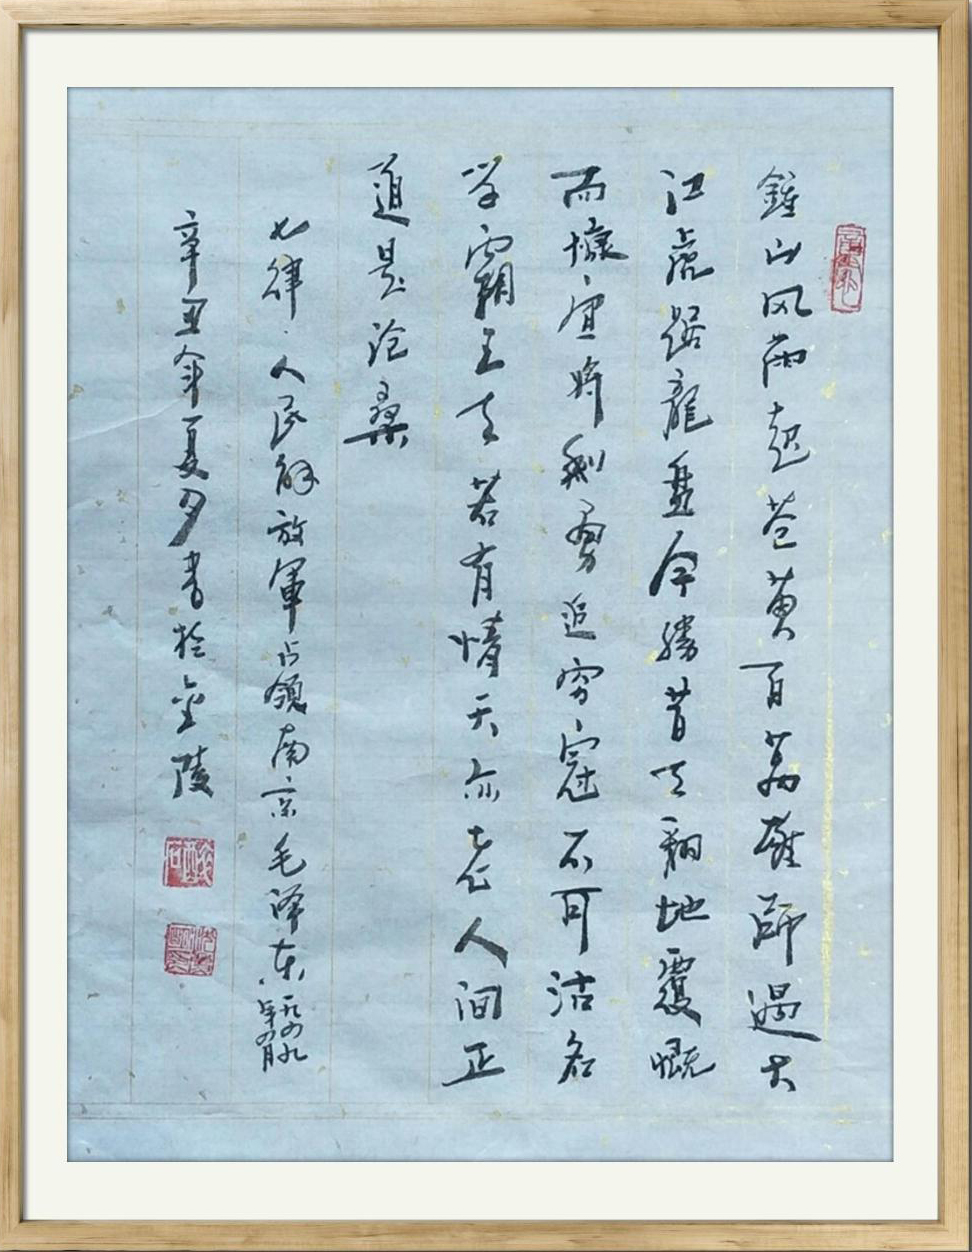 鍾山风雨起苍黄百萬雄師過大
江虎踞龍盘今勝昔天翻地覆慨
而慷宜將剩勇追穷寇不可沽名
学霸王天若有情天亦老人间正
道是沧桑
七律·人民解放軍占領南京毛泽东一九四九年四月
辛丑年夏夕书於金陵